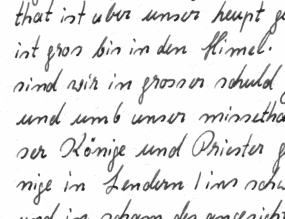 that ist uber unser heupt ge
ist gros bis in den Himel.
sind wir in grosser schuld
und umb unser missetha
ser Könige und Priester g
nige in Lendern / ins schw
und in scham des angesicht